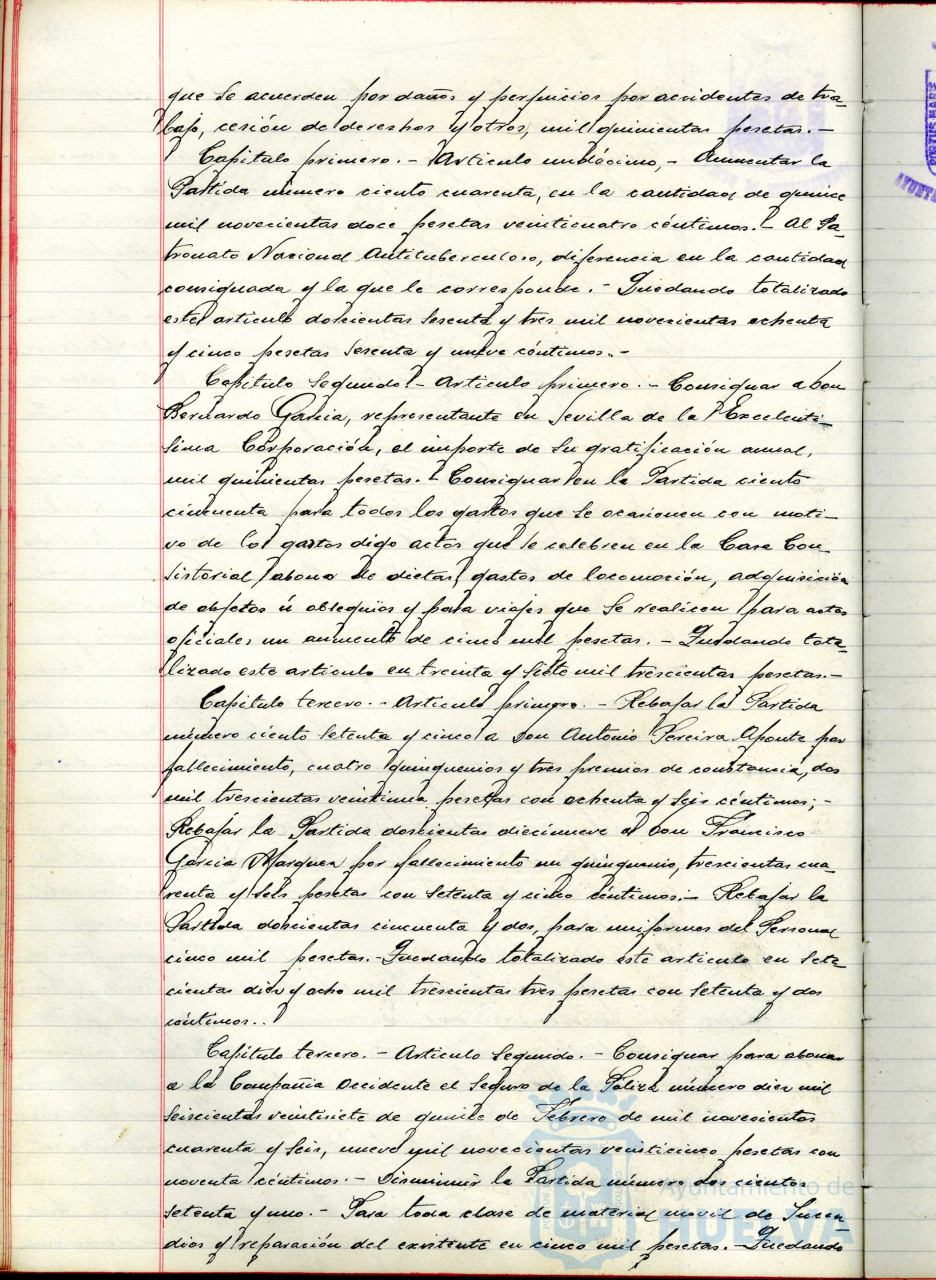 que se acuerden por daños y perjuicios por accidentes de tra-
bajo, cesión de derechos y otros, mil quinientas pesetas. -
Capitulo primero. - Articulo undécimo, - Aumentar la
Partida número ciento cuarenta, en la cantidad de quince
mil novecientas doce pesetas veinticuatro céntimos. - Al Pa-
tronato Nacional Antituberculoso, diferencia en la cantidad
consignada y la que le corresponde. - Quedando totalizado
este articulo doscientas sesenta y tres mil novecientas ochenta
y cinco pesetas sesenta y nueve céntimos. -
Capitulo segundo. - Articulo primero. - Consignar a Don
Bernardo Garcia, representante en Sevilla de la Excelentí-
sima Corporación, el importe de su gratificación anual,
mil quinientas pesetas. - Consignar en la Partida ciento
cincuenta para todos los gastos que se ocasionen con moti-
vo de los gastos digo actos que se celebren en la Casa Con
sistorial, abono de dietas, gastos de locomoción, adquisición
de objetos ú obsequios y para viajes que se realicen para actos
oficiales, un aumento de cinco mil pesetas. - Quedando tota-
lizado este articulo en treinta y siete mil trescientas pesetas. -
Capitulo tercero. - Articulo primero. - Rebajar la Partida
número ciento setenta y cinco a Don Antonio Pereira Aponte por
fallecimiento, cuatro quinquenios y tres premios de constancia, dos
mil trescientas veintiuna pesetas con ochenta y seis céntimos; -
Rebajar la Partida doscientas diecinueve a Don Francisco
Garcia Marquez por fallecimiento un quinquenio, trescientas cua-
renta y seis pesetas con setenta y cinco céntimos. - Rebajar la
Partida doscientas cincuenta y dos, para uniformes del Personal
cinco mil pesetas. - Quedando totalizado este articulo en sete-
cientas diez y ocho mil trescientas tres pesetas con setenta y dos
céntimos..
Capitulo tercero. - Articulo segundo. - Consignar para abonar
a la Compañia Occidente el Seguro de la Poliza número diez mil
seiscientas veintisiete de quince de Febrero de mil novecientos
cuarenta y seis, nueve mil novecientas veinticinco pesetas con
noventa céntimos. - Disminuir la Partida número dos cientas
setenta y uno. - Para toda clase de material movil de Incen-
dios y reparación del existente en cinco mil pesetas. - Quedando
Ayuntamiento de
HUELVA